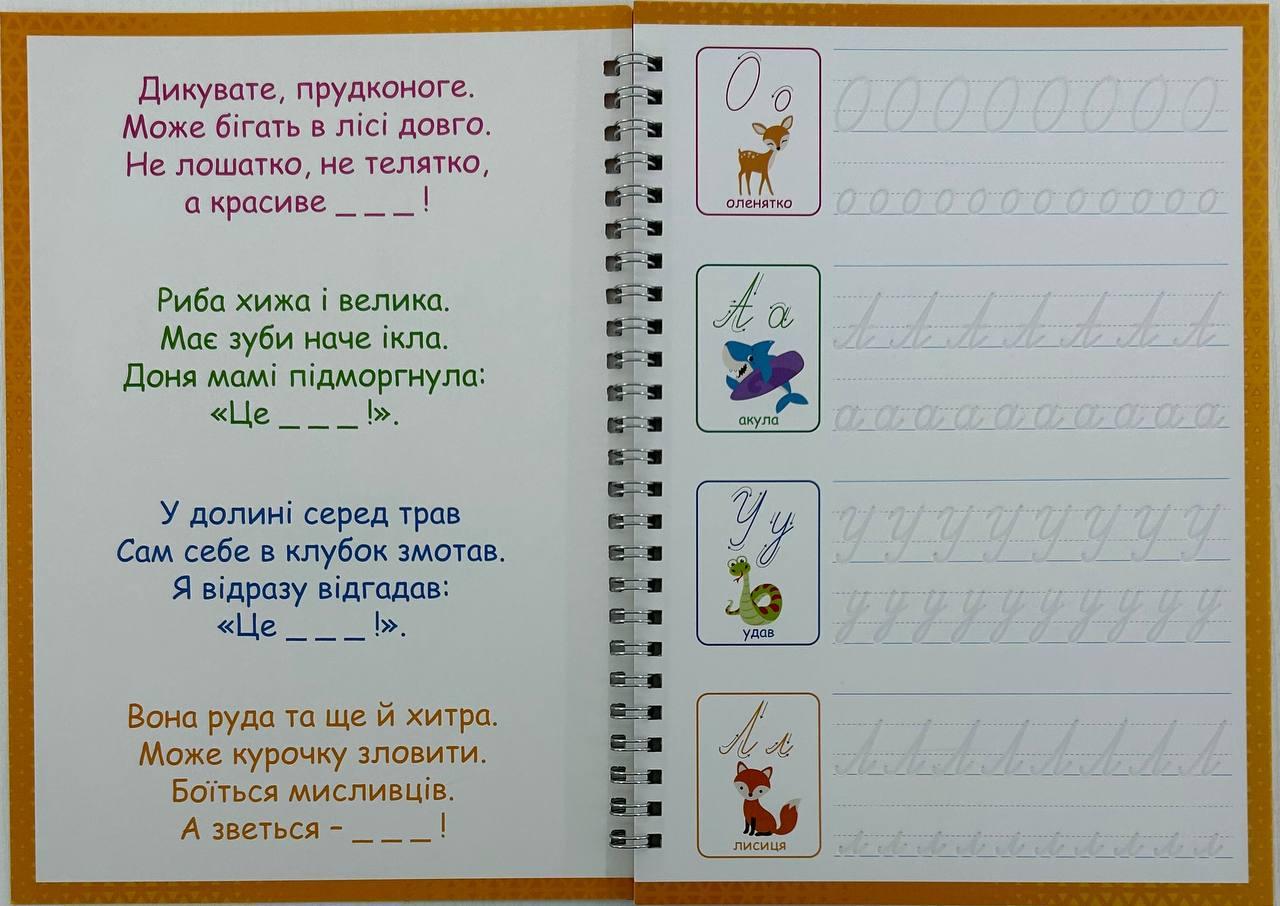 Дикувате, прудконоге.
Може бігать в лісі довго.
Не лошатко, не телятко,
а красиве _ _ _ !
Риба хижа і велика.
Має зуби наче ікла.
Доня мамі підморгнула:
«Це _ _ _ !».
У долині серед трав
Сам себе в клубок змотав.
Я відразу відгадав:
«Це _ _ _ !».
Вона руда та ще й хитра.
Може курочку зловити.
Боїться мисливців.
А зветься – _ _ _ !
О о
оленятко
О О О О О О О О
о о о о о о о о о о о о
А а
акула
А А А А А А А
а а а а а а а а а а
У у
удав
У У У У У У У У
у у у у у у у у у у
Л л
лисиця
Л Л Л Л Л Л Л Л
л л л л л л л л л л